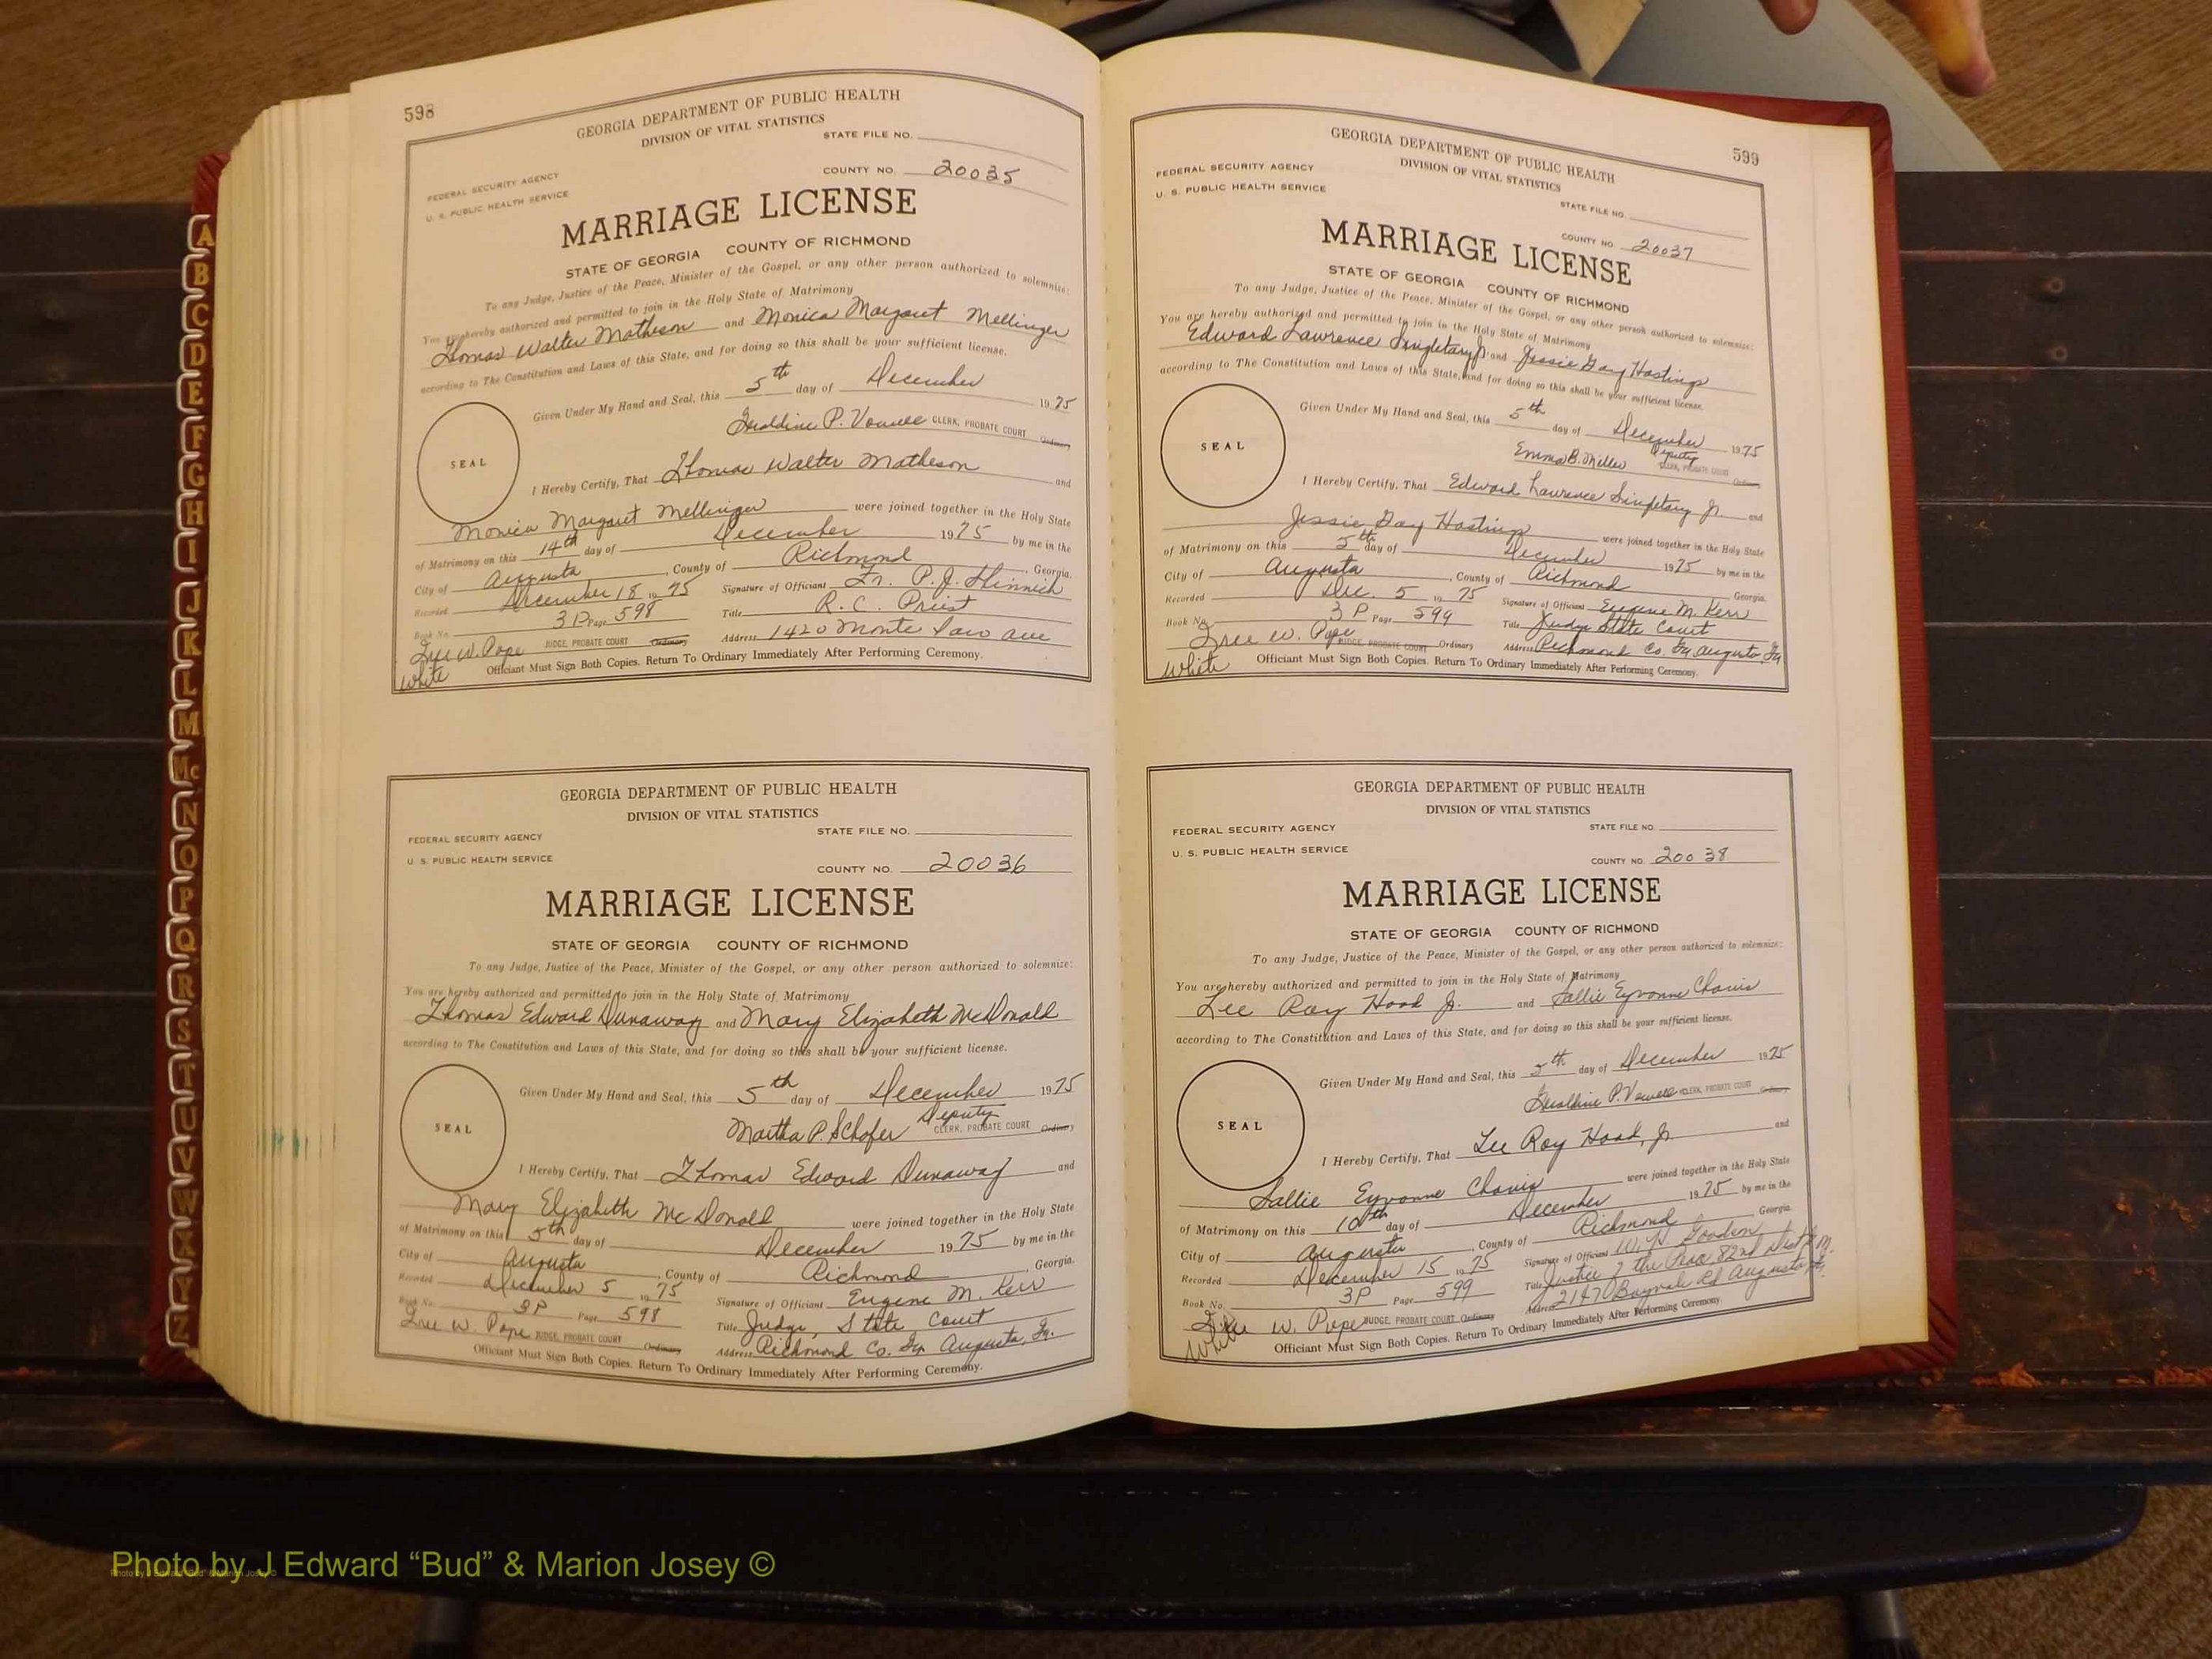 598
GEORGIA DEPARTMENT OF PUBLIC HEALTH
DIVISION OF VITAL STATISTICS
STATE FILE NO.
FEDERAL SECURITY AGENCY
U. S. PUBLIC HEALTH SERVICE
COUNTY NO. 20035
MARRIAGE LICENSE
STATE OF GEORGIA COUNTY OF RICHMOND
To any Judge, Justice of the Peace, Minister of the Gospel, or any other person authorized to solemnize:
You are hereby authorized and permitted to join in the Holy State of Matrimony
Thomas Walter Matheson and Monica Margaret Mellinger
according to The Constitution and Laws of this State, and for doing so this shall be your sufficient license.
Given Under My Hand and Seal, this 5th day of December 1975
Geraldine P. Vowell CLERK, PROBATE COURT Ordinary
SEAL
I Hereby Certify, That Thomas Walter Matheson and
Monica Margaret Mellinger were joined together in the Holy State
of Matrimony on this 14th day of December 1975 by me in the
City of Augusta, County of Richmond, Georgia.
Recorded December 18 1975 Signature of Officiant Fr. P. J.
Book No. 3P Page 598 Title R. C. Priest
JUDGE, PROBATE COURT Ordinary Address 1420 Monte Sano Ave
W. Pope
White
Officiant Must Sign Both Copies. Return To Ordinary Immediately After Performing Ceremony.
GEORGIA DEPARTMENT OF PUBLIC HEALTH
DIVISION OF VITAL STATISTICS
STATE FILE NO.
FEDERAL SECURITY AGENCY
U. S. PUBLIC HEALTH SERVICE
COUNTY NO. 20036
MARRIAGE LICENSE
STATE OF GEORGIA COUNTY OF RICHMOND
To any Judge, Justice of the Peace, Minister of the Gospel, or any other person authorized to solemnize:
You are hereby authorized and permitted to join in the Holy State of Matrimony
Thomas Edward Dunaway and Mary Elizabeth McDonald
according to The Constitution and Laws of this State, and for doing so this shall be your sufficient license.
Given Under My Hand and Seal, this 5th day of December 1975
Martha P. Schofer Deputy CLERK, PROBATE COURT Ordinary
SEAL
I Hereby Certify, That Thomas Edward Dunaway and
Mary Elizabeth McDonald were joined together in the Holy State
of Matrimony on this 5th day of December 1975 by me in the
City of Augusta, County of Richmond, Georgia.
Recorded December 5 1975 Signature of Officiant Eugene M. Kerr
Book No. 3P Page 598 Title Judge, State Court
W. Pope JUDGE, PROBATE COURT Ordinary Address Richmond Co. Ga Augusta, Ga.
Officiant Must Sign Both Copies. Return To Ordinary Immediately After Performing Ceremony.
599
GEORGIA DEPARTMENT OF PUBLIC HEALTH
DIVISION OF VITAL STATISTICS
FEDERAL SECURITY AGENCY
U. S. PUBLIC HEALTH SERVICE
STATE FILE NO.
COUNTY NO 20037
MARRIAGE LICENSE
STATE OF GEORGIA COUNTY OF RICHMOND
To any Judge, Justice of the Peace, Minister of the Gospel, or any other person authorized to solemnize:
You are hereby authorized and permitted to join in the Holy State of Matrimony
Edward Lawrence Singletary Jr and Jessie Gay Hastings
according to The Constitution and Laws of this State, and for doing so this shall be your sufficient license.
Given Under My Hand and Seal, this 5th day of December 1975
Emma B. Miller Deputy CLERK, PROBATE COURT Ordinary
SEAL
I Hereby Certify, That Edward Lawrence Singletary Jr. and
Jessie Gay Hastings were joined together in the Holy State
of Matrimony on this 5th day of December 1975 by me in the
City of Augusta, County of Richmond Georgia.
Recorded Dec. 5 1975 Signature of Officiant Eugene M. Kerr
Book No. 3P Page 599 Title Judge State Court
W. Pope JUDGE, PROBATE COURT Ordinary Address Richmond Co. Ga Augusta Ga
White
Officiant Must Sign Both Copies. Return To Ordinary Immediately After Performing Ceremony.
GEORGIA DEPARTMENT OF PUBLIC HEALTH
DIVISION OF VITAL STATISTICS
FEDERAL SECURITY AGENCY
STATE FILE NO.
U. S. PUBLIC HEALTH SERVICE
COUNTY NO 20038
MARRIAGE LICENSE
STATE OF GEORGIA COUNTY OF RICHMOND
To any Judge, Justice of the Peace, Minister of the Gospel, or any other person authorized to solemnize:
You are hereby authorized and permitted to join in the Holy State of Matrimony
Lee Roy Hood Jr. and Sallie Eyvonne Chavis
according to The Constitution and Laws of this State, and for doing so this shall be your sufficient license.
Given Under My Hand and Seal, this 5th day of December 1975
Geraldine P. Vowell CLERK, PROBATE COURT Ordinary
SEAL
I Hereby Certify, That Lee Roy Hood, Jr and
Sallie Eyvonne Chavis were joined together in the Holy State
of Matrimony on this 10th day of December 1975 by me in the
City of Augusta, County of Richmond Georgia.
Recorded December 15 1975 Signature of Officiant
Book No. 3P Page 599 Title Justice of the Peace 82nd Dist G. M.
W. Pope JUDGE, PROBATE COURT Ordinary Address 2147 Rd Augusta Ga.
White
Officiant Must Sign Both Copies. Return To Ordinary Immediately After Performing Ceremony.
A
B
C
D
E
F
G
H
I
J
K
L
M
Mc
N
O
P
Q
R
S
T
U
V
W
X
Y
Z
Photo by J Edward “Bud” & Marion Josey ©
Photo by J Edward “Bud” & Marion Josey ©